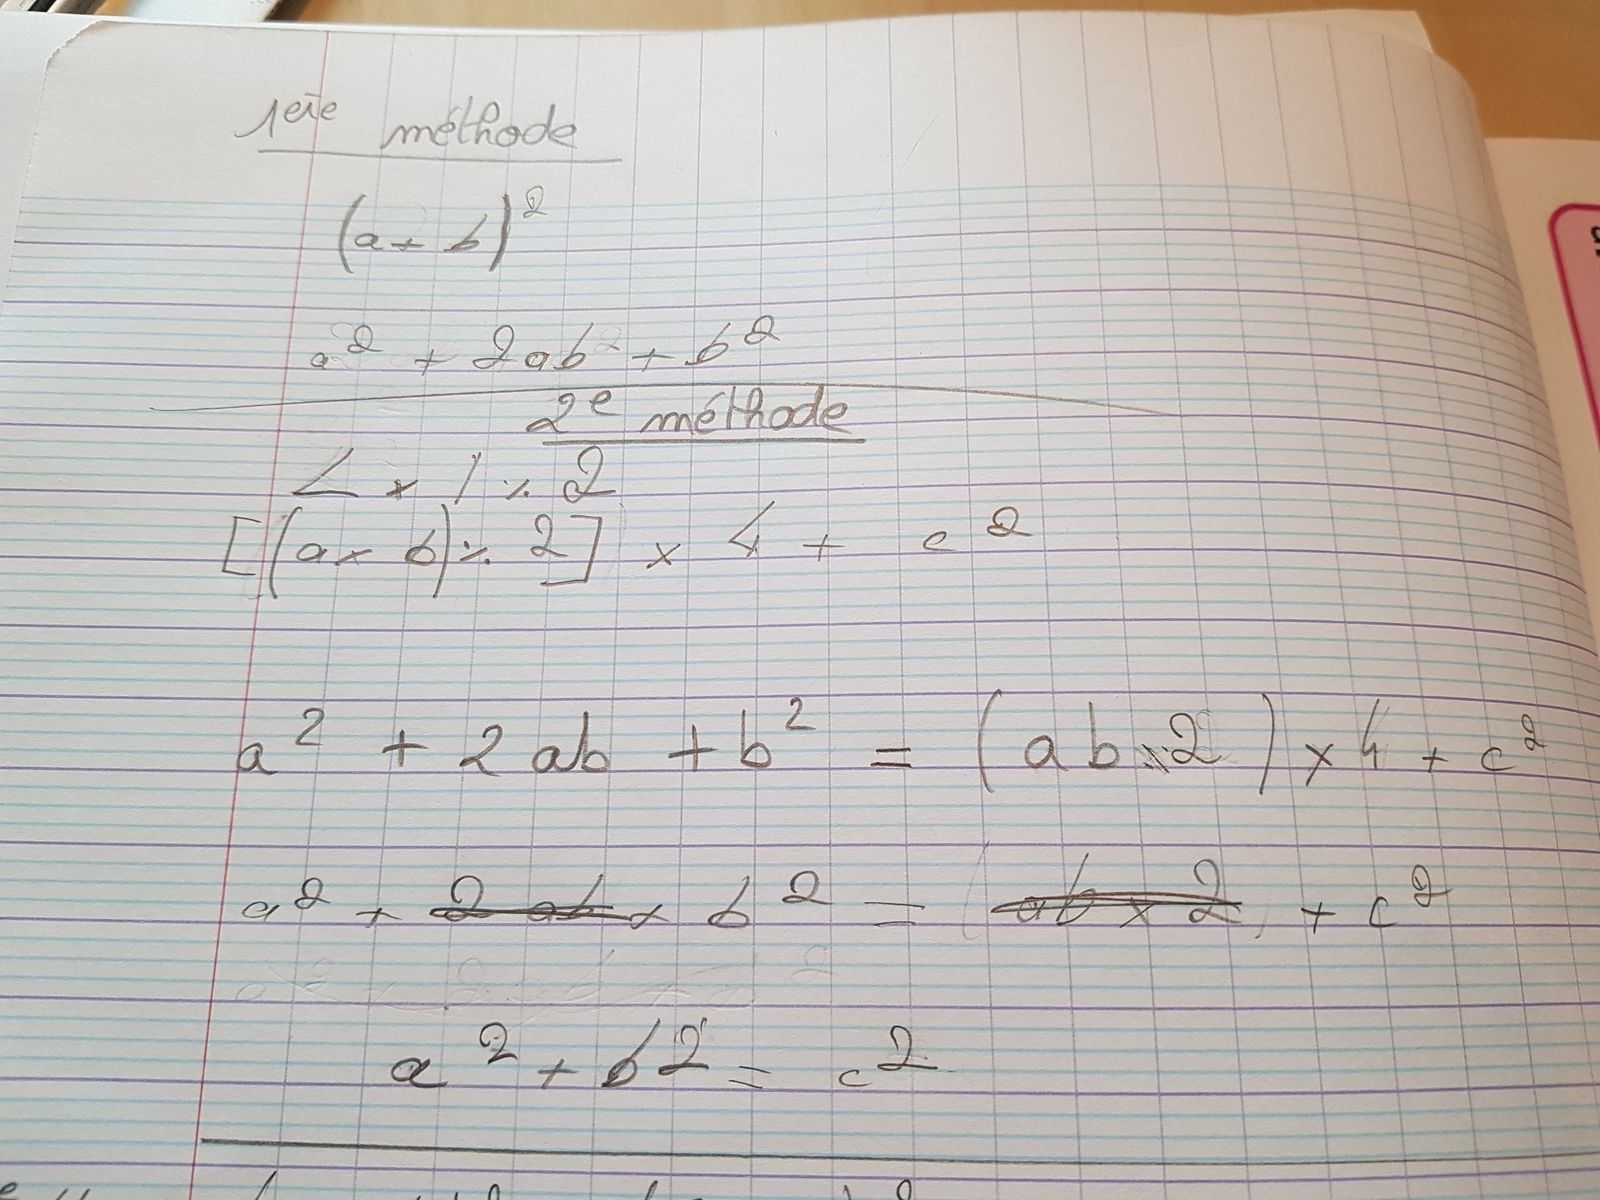 1ère méthode
(a + b)²
a² + 2ab + b²
2e méthode
L × l ÷ 2
[(a × b) ÷ 2] × 4 + c²
a² + 2ab + b² = (ab ÷ 2) × 4 + c²
a² + 2ab + b² = ab × 2 + c²
a² + b² = c²